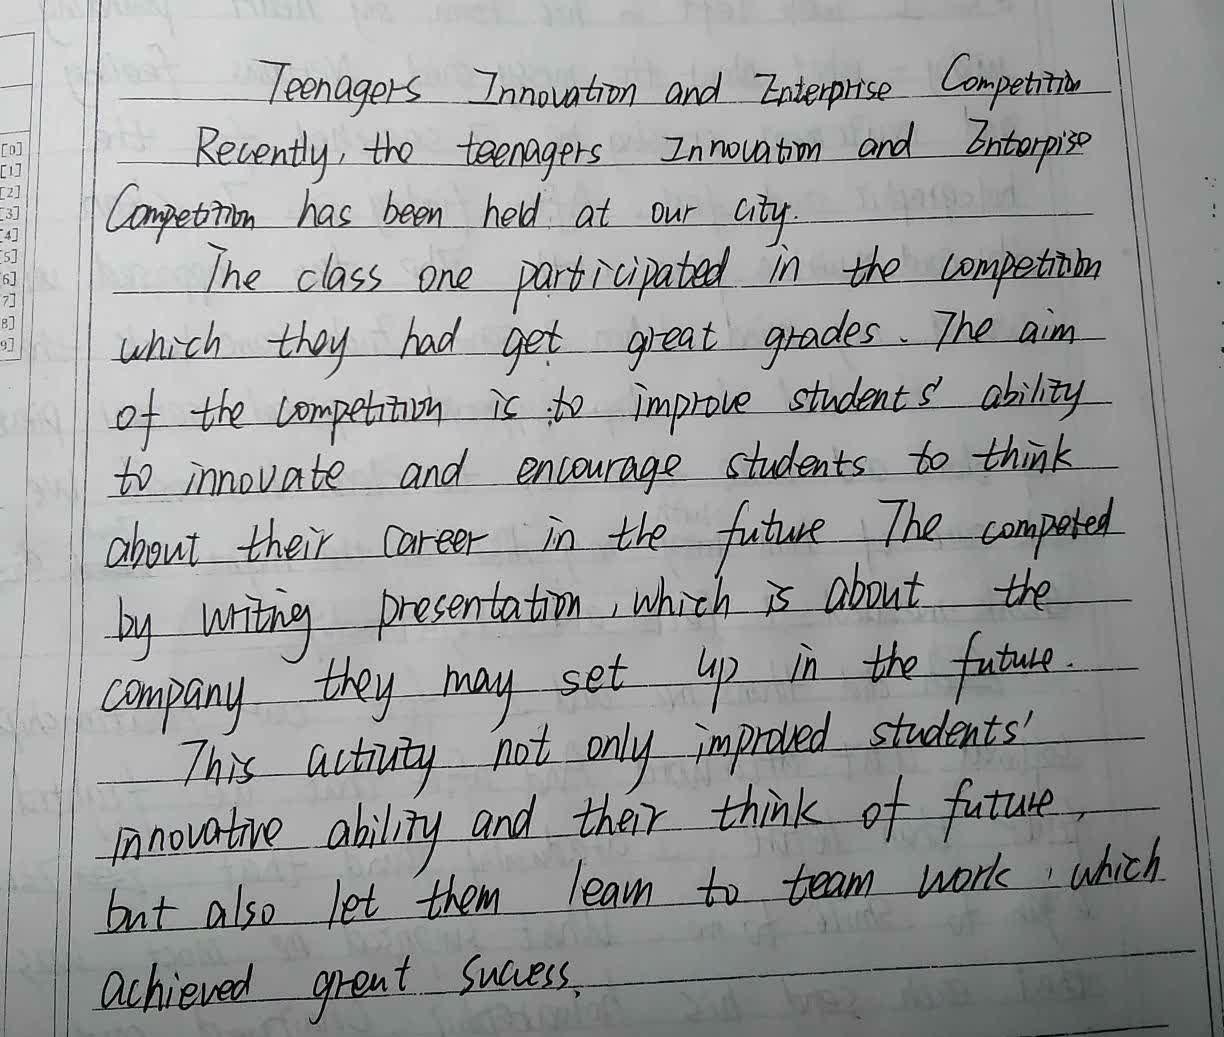 Teenagers Innovation and Enterprise Competition
Recently, the teenagers Innovation and Enterpise
Competition has been held at our city.
The class one participated in the competition
which they had get great grades. The aim
of the competition is to improve students' ability
to innovate and encourage students to think
about their career in the future The competed
by writing presentation, which is about the
company they may set up in the future.
This activity not only improved students'
innovative ability and their think of future,
but also let them learn to team work, which
achieved great success.
[0]
[1]
[2]
[3]
[4]
[5]
[6]
[7]
[8]
[9]